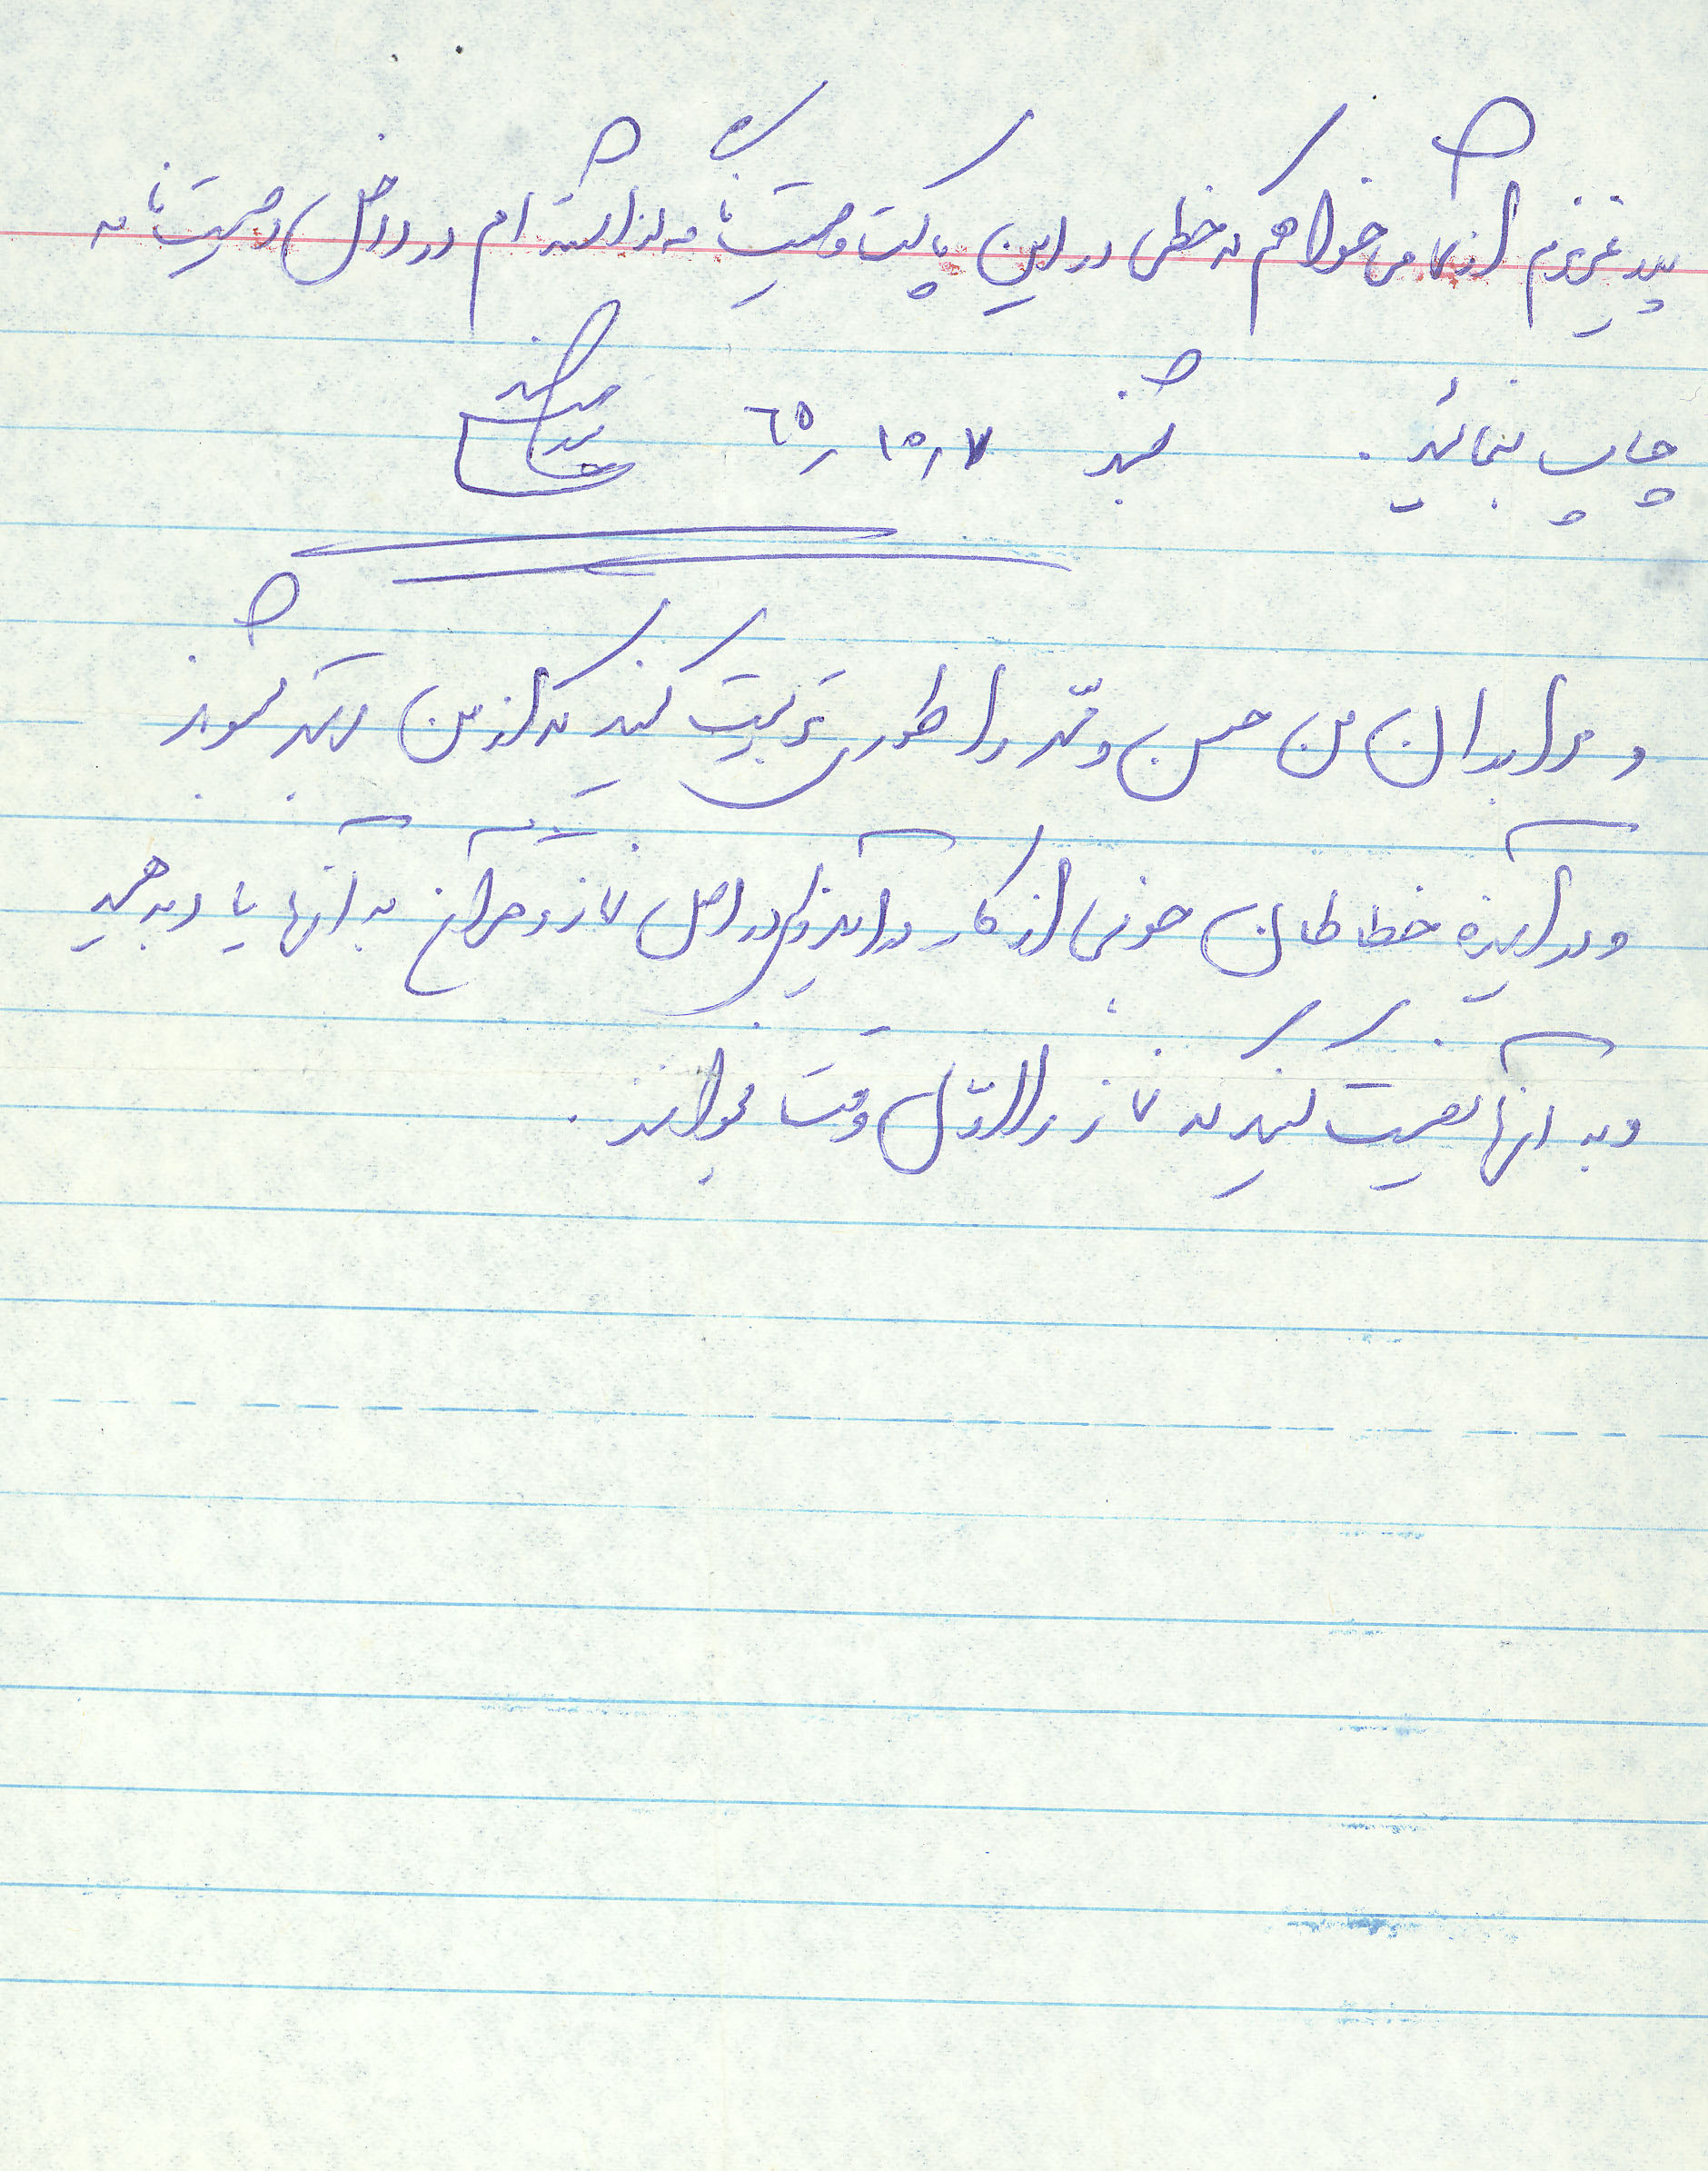 پدر عزیزم از شما می خواهم که خطی در این پاکت وصیت نامه گذاشته ام در داخل وصیت نامه
چاپ بنمائید. شنبه ٦٥٫١٠٫٧
و برادران من حسن و محمد را طوری تربیت کنید که از من بهتر شوند
و در آینده خطاطان خوبی از کار درآیند ولی در اصل نماز و قرآن به آنها یاد بدهید
و به آنها نصیحت کنید که نماز را اوّل وقت بخوانند.